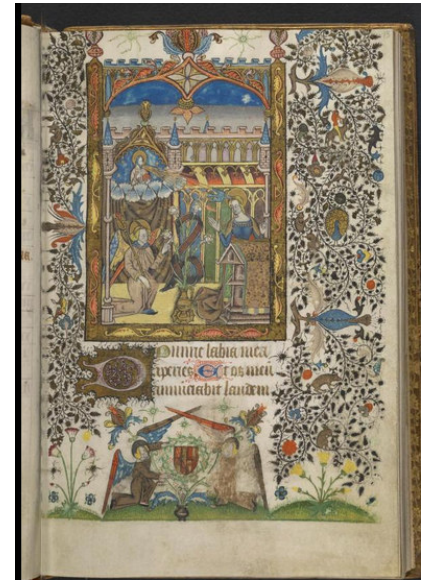 Domine labia mea
aperies. Et os meū
annūciabit laudem